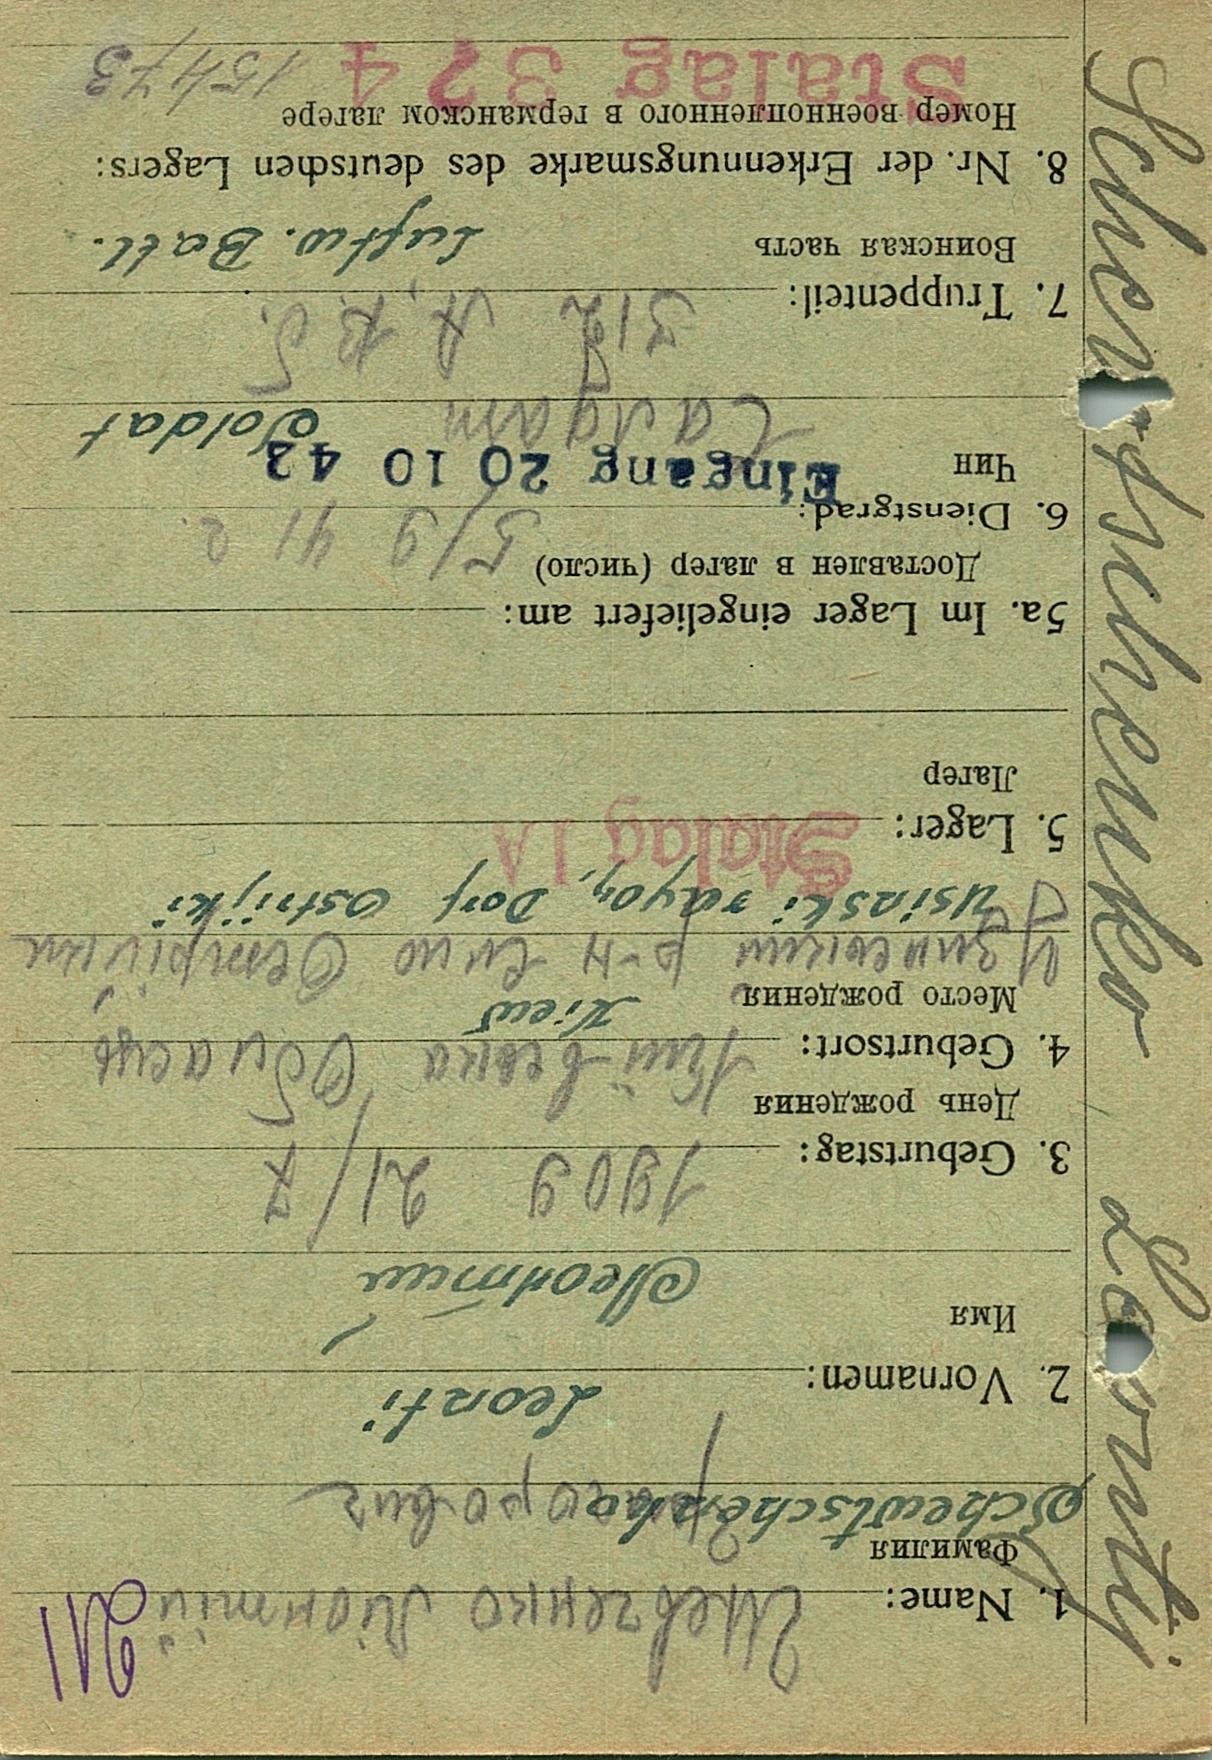 Schewtschenko Leontij
211
1. Name: Шевченко Ліонтій
Фамилия
Schewtschenko
Leonti
2. Vornamen:
Имя
Леонтий
3. Geburtstag: 1909 21/7
День рождения
4. Geburtsort: Київська Область
Место рождения Kiew
р-н село Острійки
Usinski rayon, Dorf Ostrijki
5. Lager: Stalag IA
Лагер
5a. Im Lager eingeliefert am:
Доставлен в лагер (число) 5/9 41 г.
6. Dienstgrad: Eingang 20 10 42
Чин Soldat
Салдат
7. Truppenteil: 312
Воинская часть Luftw. Batl.
8. Nr. der Erkennungsmarke des deutschen Lagers:
Номер военнопленного в германском лагере
Stalag 324 15473